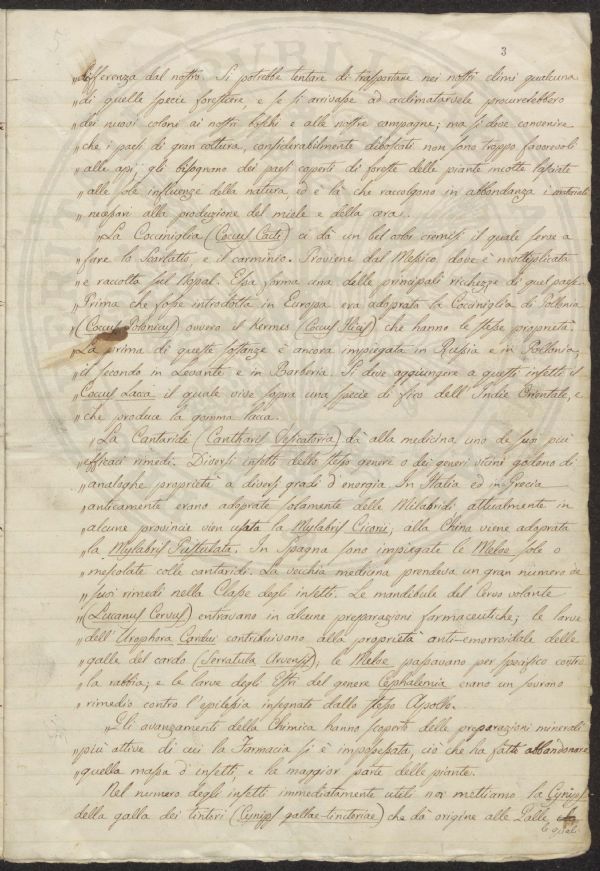 3
„differenza dal nostro. Si potrebbe tentare di trasportare nei nostri climi qualcuna
„di quelle specie forestiere, e se si arrivasse ad acclimatarvele procurerebbero
„dei nuovi coloni ai nostri boschi e alle nostre campagne; ma si deve convenire
„che i paesi di gran coltura, considerabilmente diboscati non sono troppo favorevoli
„alle api; gli bisognano dei paesi coperti di foreste delle piante incolte lasciate
„alle sole influenze della natura, ed è là che raccolgono in abbondanza i materiali
„necessari alla produzione del miele e della cera.
„La Cocciniglia (Coccus Cacti) ci dà un bel color cremisi il quale serve a
„fare lo Scarlatto, e il carminio. Proviene dal Messico, dove è moltiplicata
„e raccolta sul Nopal. Essa forma una delle principali ricchezze di quel paese.
„Prima che fosse introdotta in Europa era adoprata la Cocciniglia di Pollonia
„(Coccus Polonicus) ovvero il Kermes (Coccus Ilicis) che hanno le stesse proprietà.
„La prima di queste sostanze è ancora impiegata in Russia e in Pollonia,
„il secondo in Levante e in Barberia. Si deve aggiungere a questi insetti il
„Coccus Lacca il quale vive sopra una specie di fico dell'Indie Orientale, e
„che produce la gomma lacca.
„La Cantaride (Cantharis Vesicatoria) dà alla medicina uno de suoi più
„efficaci rimedi. Diversi insetti dello stesso genere o dei generi vicini godono di
„analoghe proprietà a diversi gradi d'energia. In Italia ed in Grecia
„anticamente erano adoprate solamente delle Milabridi attualmente in
„alcune provincie vien usata la Mylabris Cicorii; alla China viene adoprata
„la Mylabris Pustulata. In Spagna sono impiegate le Meloe sole o
„mescolate colle cantaridi. La vecchia medicina prendeva un gran numero de
„suoi rimedi nella Classe degli insetti. Le mandibule del Cervo volante
„(Lucanus Cervus) entravano in alcune preparazioni farmaceutiche; le larve
„dell'Urophora Cardus contribuivano alla proprietà anti-emorroidale delle
„galle del cardo (Serratula Arvensis), le Meloe passavano per specifico contro
„la rabbia; e le larve degli Estri del genere Cephalemia erano un sovrano
„rimedio contro l'epilepsia insegnato dallo stesso Apollo.
„Gli avanzamenti della Chimica hanno scoperto delle preparazioni minerali
„più attive di cui la Farmacia si è impossessata, ciò che ha fatto abbandonare
„quella massa d'insetti, e la maggior parte delle piante.
Nel numero degli insetti immediatamente utili noi mettiamo la Cynips
„della galla dei tintori (Cynips gallae-tinctoriae) che dà origine alle Galle
le quali